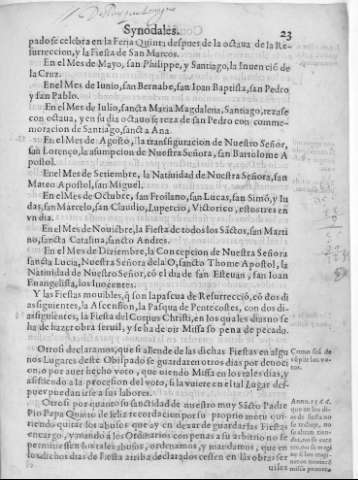 Synodales.
23
pado se celebra en la Feria Quinta despues de la octaua de la Re-
surreccion, y la Fiesta de San Marcos.
En el Mes de Mayo, san Philippe, y Santiago, la Inuenciõ de
la Cruz.
En el Mes de Iunio, san Bernabe, san Ioan Baptista, san Pedro
y san Pablo.
En el Mes de Iulio, sancta Maria Magdalena, Santiago, reza se
con octaua, y en su dia octauo se reza de san Pedro con comme-
moracion de Santiago, sancta Ana.
En el Mes de Agosto, la transfiguracion de Nuestro Señor,
san Lorenço, la assumpcion de Nuestra Señora, san Bartolome A
postol.
En el Mes de Setiembre, la Natiuidad de Nuestra Señora, san
Mateo Apostol, san Miguel.
En el Mes de Octubre, san Froilano, san Lucas, san Simõ, y Iu
das, san Marcelo, san Claudio, Lupercio, Victorico, estos tres en
vn dia.
En el Mes de Nouiẽbre, la Fiesta de todos los Sãctos, san Marti
no, sancta Catalina, sancto Andres.
En el Mes de Diziembre, la Concepcion de Nuestra Señora
sancta Lucia, Nuestra Señora de la O, sancto Thome Apostol, la
Natiuidad de Nuestro Señor, cõ el dia de san Esteuan, san Ioan
Euangelista, los Inocentes.
Y las Fiestas mouibles, q̃ son la pascua de Resurrecciõ, cõ dos di
as siguientes, la Ascension, la Pasqua de Pentecostes, con dos di-
as siguientes, la Fiesta del Corpus Christi, en los quales dias no se
ha de hazer obra seruil, y se ha de oir Missa so pena de pecado.
Otrosi declaramos, que si allende de las dichas Fiestas en algu
nos Lugares deste Obispado se guardaren otros dias por deuoci
on, o por auer hecho voto, que oiendo Missa en los tales dias, y
assistiendo a la procesion del voto, si la vuiere en el tal Lugar des-
pues puedan irse a sus labores.
Otrosi por quanto su sanctidad de nuestro muy Sãcto Padre
Pio Papa Quinto de feliz recordacion por su proprio motu que-
riendo quitar los abusos que ay en dexar de guardar las Fiestas
encargo, y mando à los Ordinarios con penas a su arbitrio no se
permitiessen los tales abusos, ordenamos, y mandamos, que en
los dichos dias de Fiesta arriba declarados cessen en las obras ser
uiles